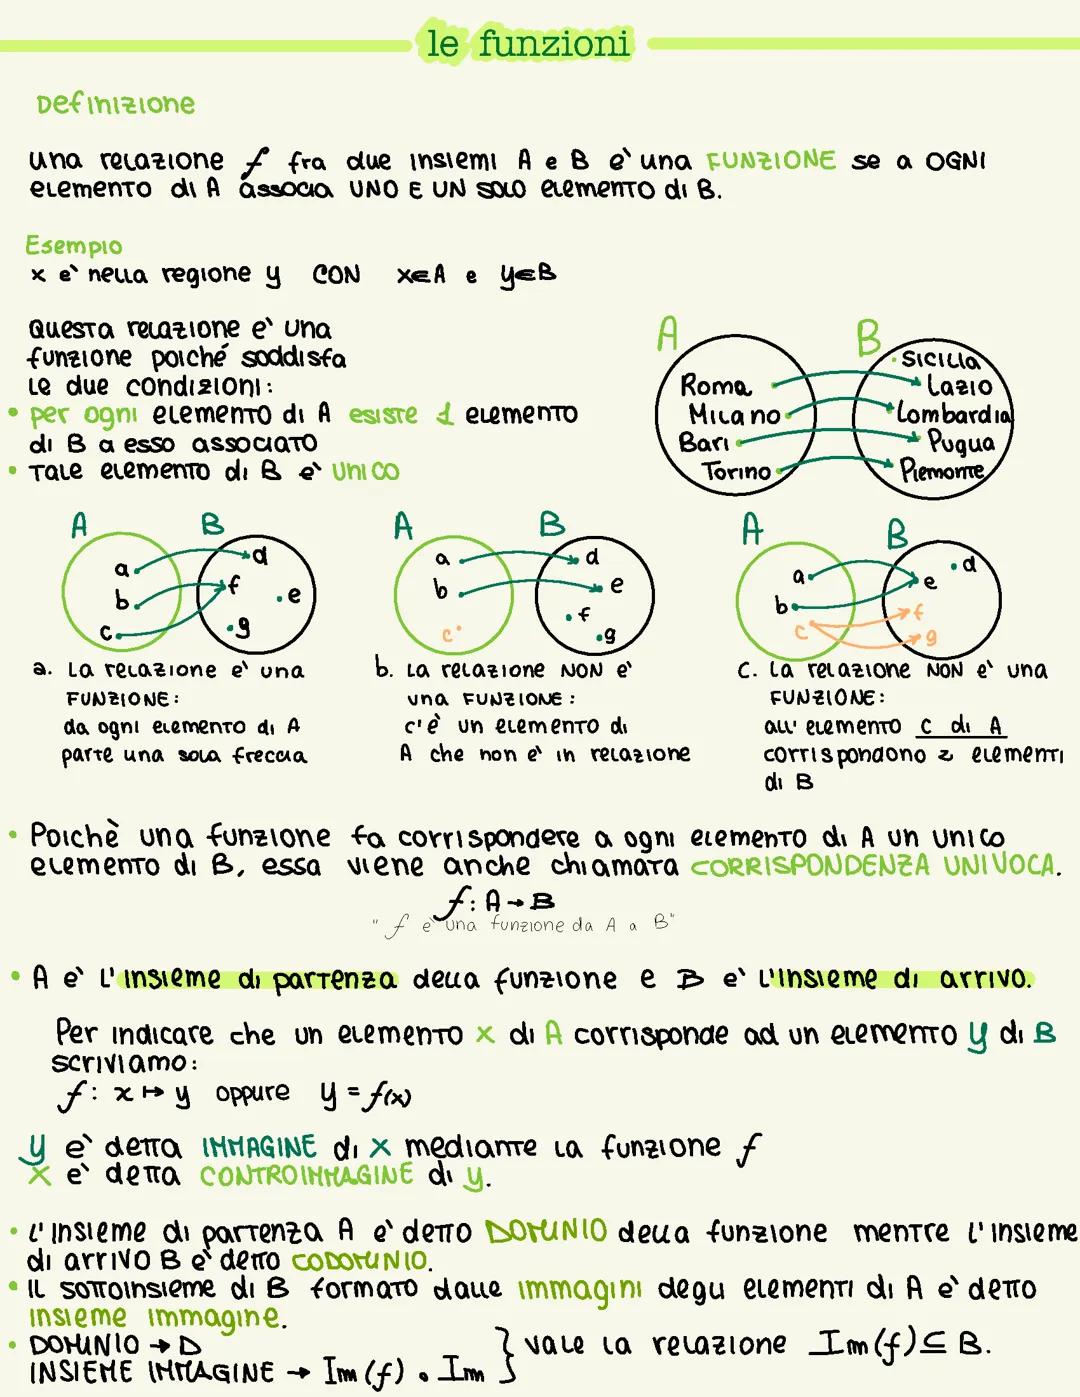 le funzioni
Definizione
una relazione f fra due insiemi A e B è una FUNZIONE se a OGNI
elemento di A associa UNO E UN SOLO elemento di B.
Esempio
x è nella regione y CON x∈A e y∈B
Questa relazione è una
funzione poiché soddisfa
le due condizioni:
• per ogni elemento di A esiste 1 elemento
di B a esso associato
• Tale elemento di B è unico
A B
Sicilia
Roma Lazio
Milano Lombardia
Bari Puglia
Torino Piemonte
A B A B A B
a d a d a d
b f e b e b e
c g c f g c f g
a. La relazione è una
FUNZIONE:
da ogni elemento di A
parte una sola freccia
b. La relazione NON è
una FUNZIONE:
c'è un elemento di
A che non è in relazione
c. La relazione NON è una
FUNZIONE:
all' elemento c di A
corrispondono 2 elementi
di B
• Poichè una funzione fa corrispondere a ogni elemento di A un unico
elemento di B, essa viene anche chiamata CORRISPONDENZA UNIVOCA.
f: A → B
" f è una funzione da A a B"
• A è l'insieme di partenza della funzione e B è l'insieme di arrivo.
Per indicare che un elemento x di A corrisponde ad un elemento y di B
scriviamo:
f: x ↦ y oppure y = f(x)
y è detta IMMAGINE di x mediante la funzione f
x è detta CONTROIMMAGINE di y.
• L'insieme di partenza A è detto DOMINIO della funzione mentre l'insieme
di arrivo B è detto CODOMINIO.
• Il sottoinsieme di B formato dalle immagini degli elementi di A è detto
insieme immagine.
• DOMINIO → D
INSIEME IMMAGINE → Im(f) • Im } vale la relazione Im(f) ⊆ B.